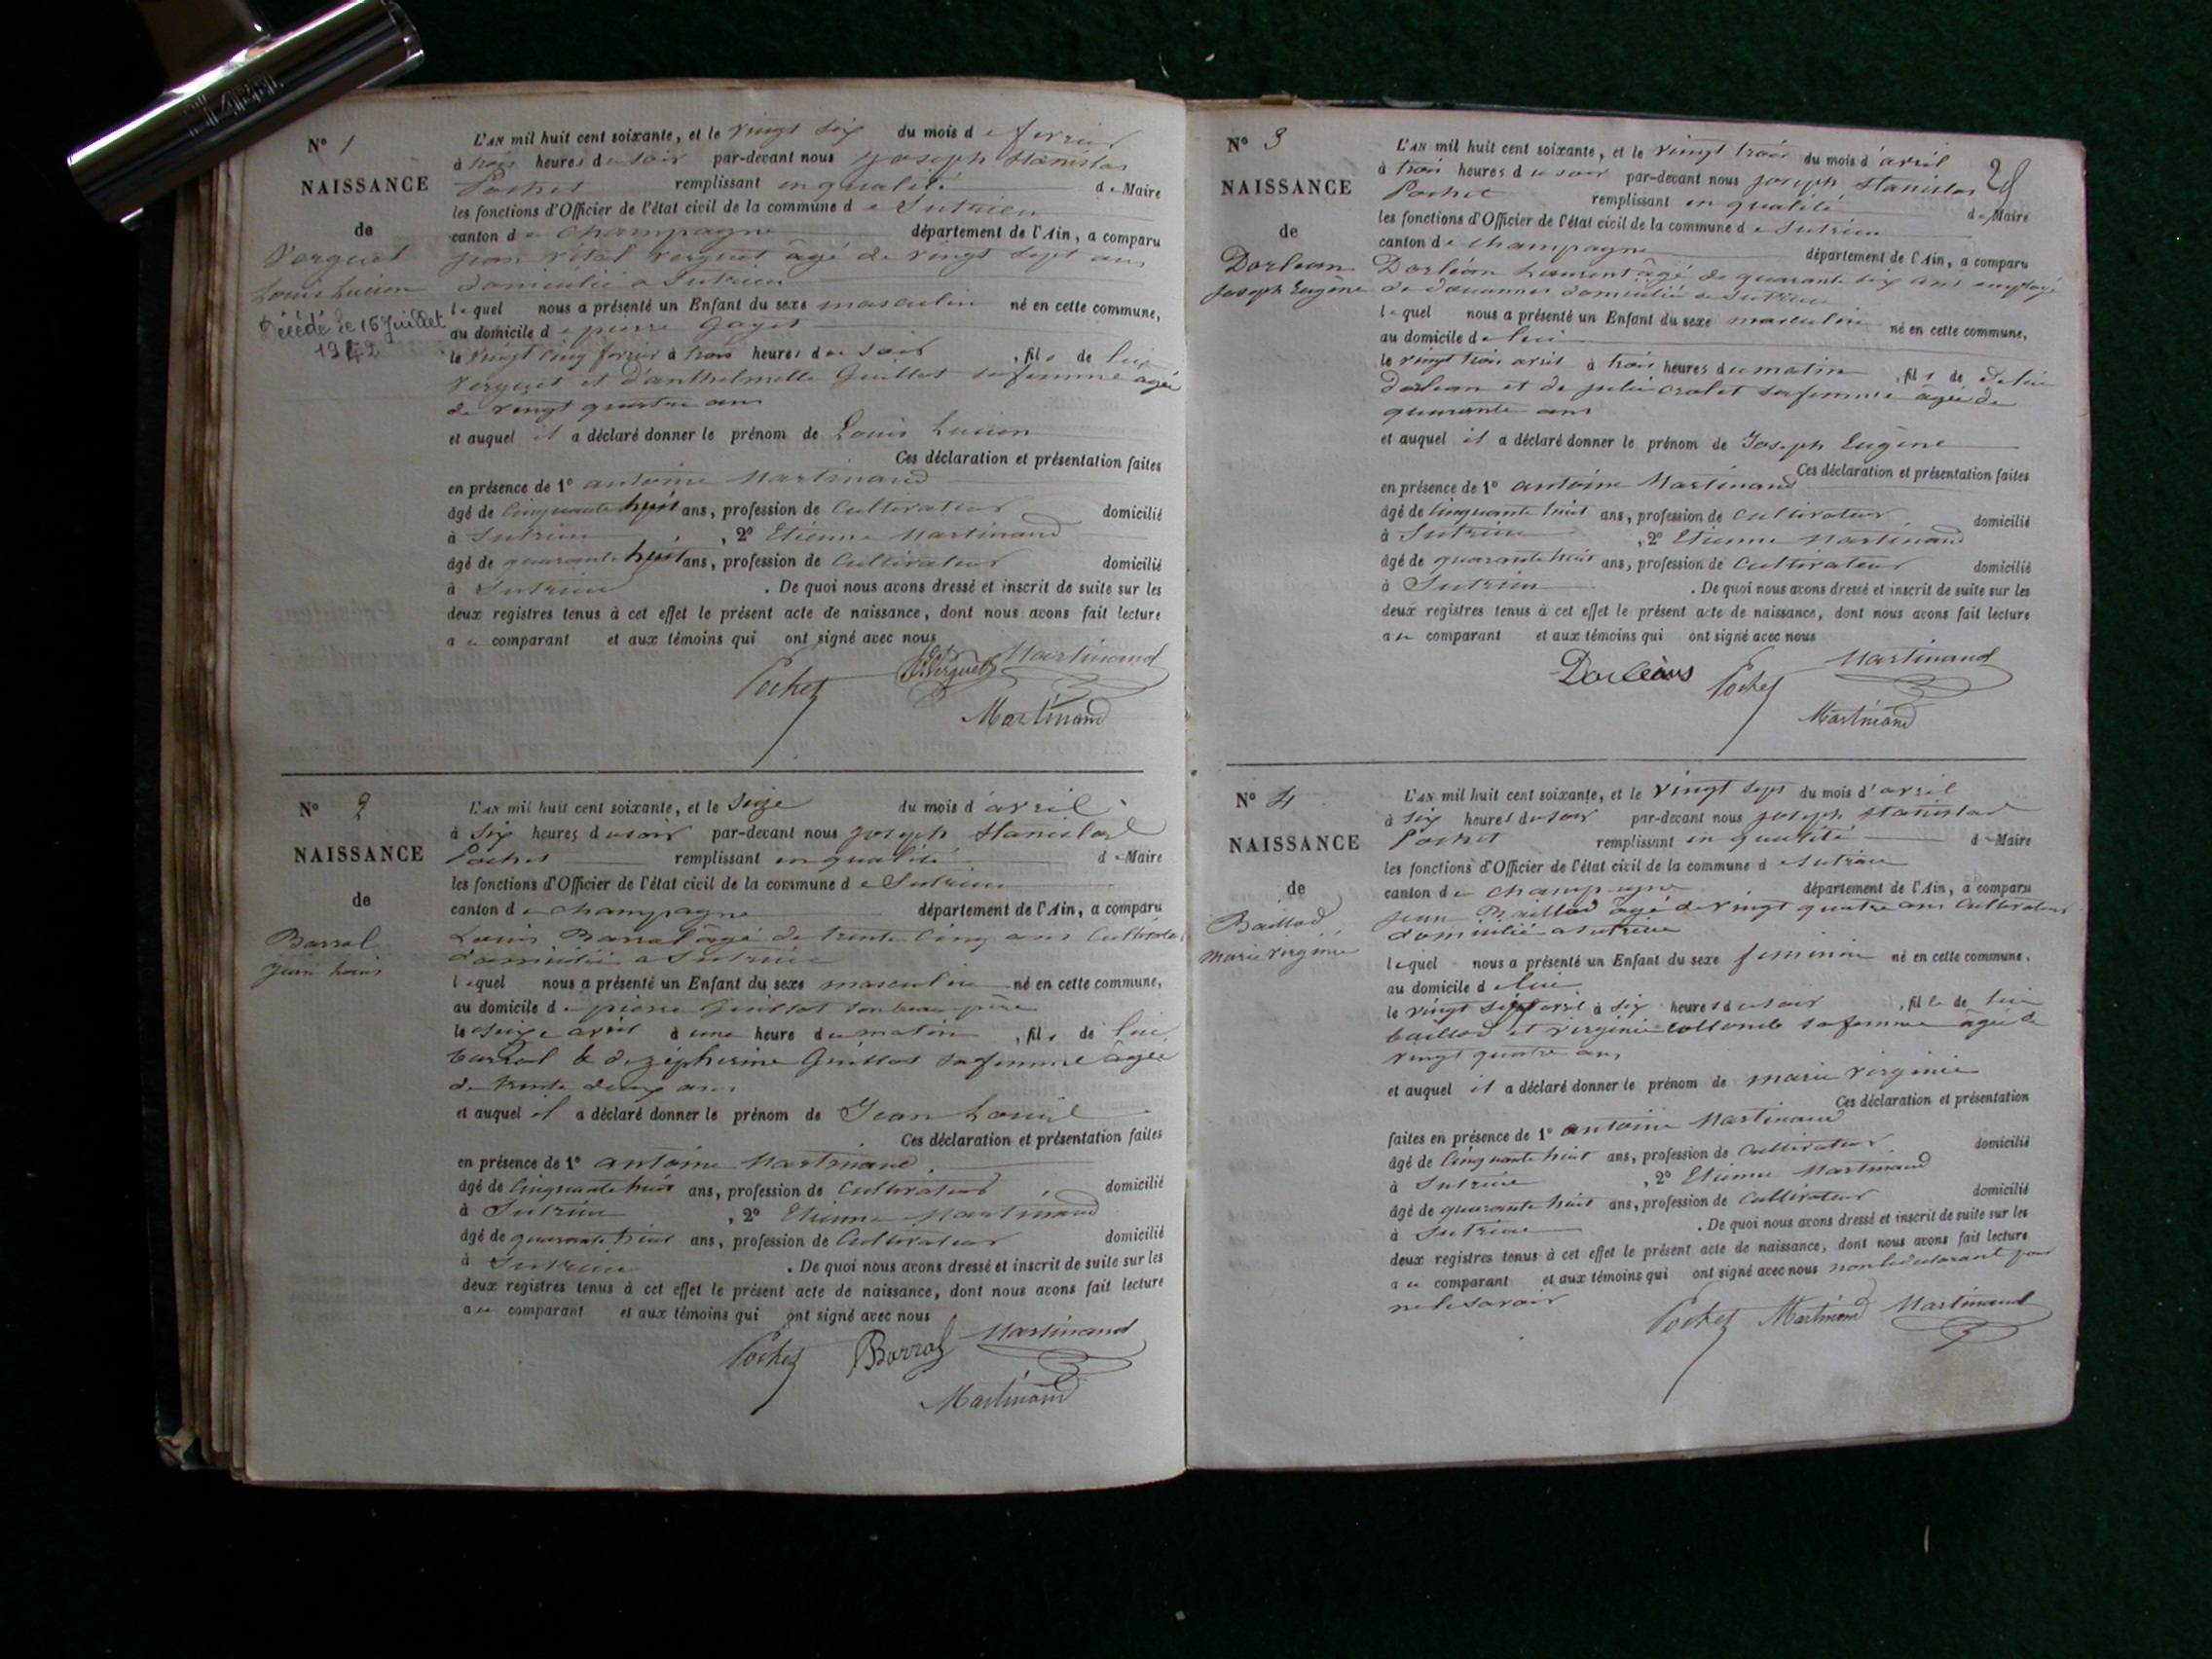 N° 1
NAISSANCE
de
Verguet
Louis Lucien
Décédé le 16 Juillet
1942
L'AN mil huit cent soixante, et le vingt six du mois de février
à trois heures du soir par-devant nous joseph Stanislas
Pochet remplissant en qualité de Maire
les fonctions d'Officier de l'état civil de la commune de Sutrieu
canton de champagne département de l'Ain, a comparu
jean vital verguet âgé de vingt sept ans
domicilié a Sutrieu
lequel nous a présenté un Enfant du sexe masculin né en cette commune,
au domicile de pierre
le vingt cinq fevrier à trois heures du soir, fils de lui
Verguet et d'anthelmette Guillot sa femme agée
de vingt quatre ans
et auquel il a déclaré donner le prénom de Louis Lucien
Ces déclaration et présentation faites
en présence de 1° antoine Martinand
âgé de cinquante huit ans, profession de Cultivateur domicilié
à Sutrieu, 2° Etienne Martinand
âgé de quarante huit ans, profession de Cultivateur domicilié
à Sutrieu. De quoi nous avons dressé et inscrit de suite sur les
deux registres tenus à cet effet le présent acte de naissance, dont nous avons fait lecture
au comparant et aux témoins qui ont signé avec nous
Pochet Verguet Martinand
Martinand
N° 2
NAISSANCE
de
Barral
jean Louis
L'AN mil huit cent soixante, et le seize du mois d'avril
à six heures du soir par-devant nous joseph Stanislas
Pochet remplissant en qualité de Maire
les fonctions d'Officier de l'état civil de la commune de Sutrieu
canton de champagne département de l'Ain, a comparu
Louis Barral âgé de trente cinq ans Cultivateur
domicilié a Sutrieu
lequel nous a présenté un Enfant du sexe masculin né en cette commune,
au domicile de pierre Guillot son beau père
le seize avril à une heure du matin, fils de lui
barral & de zépherine Guillot sa femme âgée
de trente deux ans
et auquel il a déclaré donner le prénom de Jean Louis
Ces déclaration et présentation faites
en présence de 1° antoine Martinand
âgé de cinquante huit ans, profession de Cultivateur domicilié
à Sutrieu, 2° Etienne Martinand
âgé de quarante huit ans, profession de Cultivateur domicilié
à Sutrieu. De quoi nous avons dressé et inscrit de suite sur les
deux registres tenus à cet effet le présent acte de naissance, dont nous avons fait lecture
au comparant et aux témoins qui ont signé avec nous
Pochet Barral Martinand
Martinand
28
N° 3
NAISSANCE
de
Dorlean
Joseph Eugène
L'AN mil huit cent soixante, et le vingt trois du mois d'avril
à trois heures du soir par-devant nous joseph Stanislas
Pochet remplissant en qualité de Maire
les fonctions d'Officier de l'état civil de la commune de Sutrieu
canton de champagne département de l'Ain, a comparu
Dorléan Laurent âgé de quarante six ans employé
de douannes domicilié a Sutrieu
lequel nous a présenté un Enfant du sexe masculin né en cette commune,
au domicile de lui
le vingt trois avril à trois heures du matin, fils de de lui
dorlean et de julie crolet sa femme âgée de
quarante ans
et auquel il a déclaré donner le prénom de Joseph Eugène
Ces déclaration et présentation faites
en présence de 1° antoine Martinand
âgé de cinquante huit ans, profession de Cultivateur domicilié
à Sutrieu, 2° Etienne Martinand
âgé de quarante huit ans, profession de Cultivateur domicilié
à Sutrieu. De quoi nous avons dressé et inscrit de suite sur les
deux registres tenus à cet effet le présent acte de naissance, dont nous avons fait lecture
au comparant et aux témoins qui ont signé avec nous
Dorléans Pochet Martinand
Martinand
N° 4
NAISSANCE
de
Baillod
marie virginie
L'AN mil huit cent soixante, et le vingt sept du mois d'avril
à six heures du soir par-devant nous joseph Stanislas
Pochet remplissant en qualité de Maire
les fonctions d'Officier de l'état civil de la commune de Sutrieu
canton de champagne département de l'Ain, a comparu
jean Baillod âgé de vingt quatre ans Cultivateur
domicilié a Sutrieu
lequel nous a présenté un Enfant du sexe feminin né en cette commune,
au domicile de lui
le vingt avril à six heures du soir, fille de lui
baillod et virginie collomb sa femme âgée de
vingt quatre ans
et auquel il a déclaré donner le prénom de marie virginie
Ces déclaration et présentation
faites en présence de 1° antoine Martinand
âgé de cinquante huit ans, profession de Cultivateur domicilié
à Sutrieu, 2° Etienne Martinand
âgé de quarante huit ans, profession de Cultivateur domicilié
à Sutrieu. De quoi nous avons dressé et inscrit de suite sur les
deux registres tenus à cet effet le présent acte de naissance, dont nous avons fait lecture
au comparant et aux témoins qui ont signé avec nous non le declarant pour
ne le savoir
Pochet Martinand Martinand